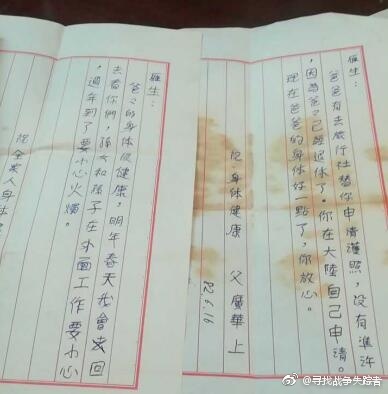 雁生：
爸爸有去旅行社替你申請護照，没有准許
，因為爸々已經退休了。你在大陸自己申請。
現在爸爸的身体好一點了，你放心。
祝·身体健康　父廣華上
82.6.16
雁生：
爸々的身体很健康，明年春天我會去回
去看你們，孫女和孫子在外面工作要小心
，過年到了要小心火燭。
祝全家人身体
@寻找战争失踪者